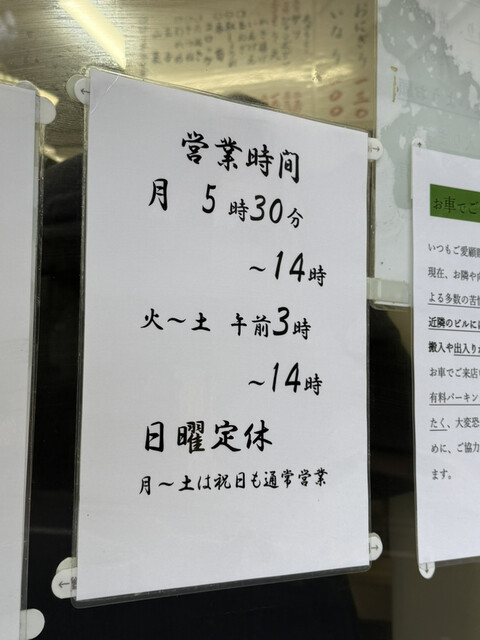 営業時間
月 5時30分
～14時
火～土 午前3時
～14時
日曜定休
月～土は祝日も通常営業
おにぎり 一三〇
いなり 一〇〇
お車でご
いつもご愛顧
現在、お隣や
よる多数の苦
近隣のビルに
搬入や出入り
お車でご来店
有料パーキン
たく、大変恐
めに、ご協力
ます。